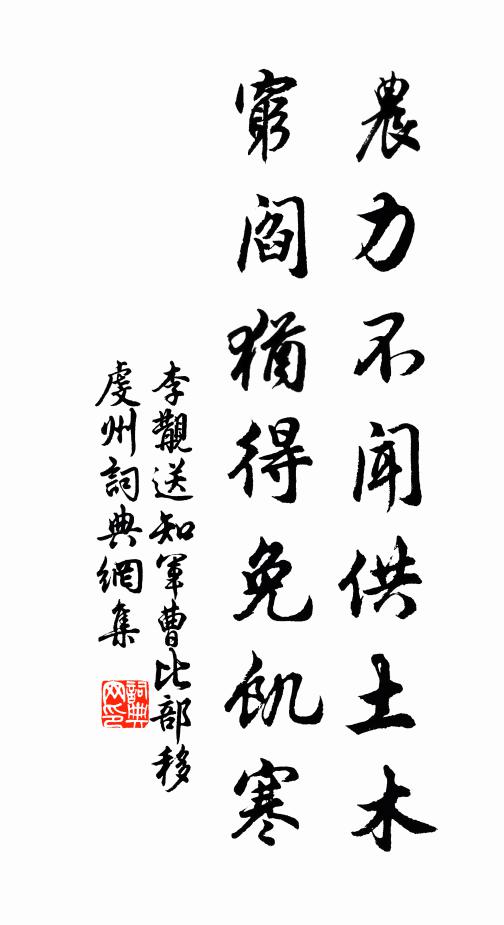 農力不聞供土木
窮閻猶得免飢寒
李覯送知軍曹比部移
虔州詞典網集
詞典
网印